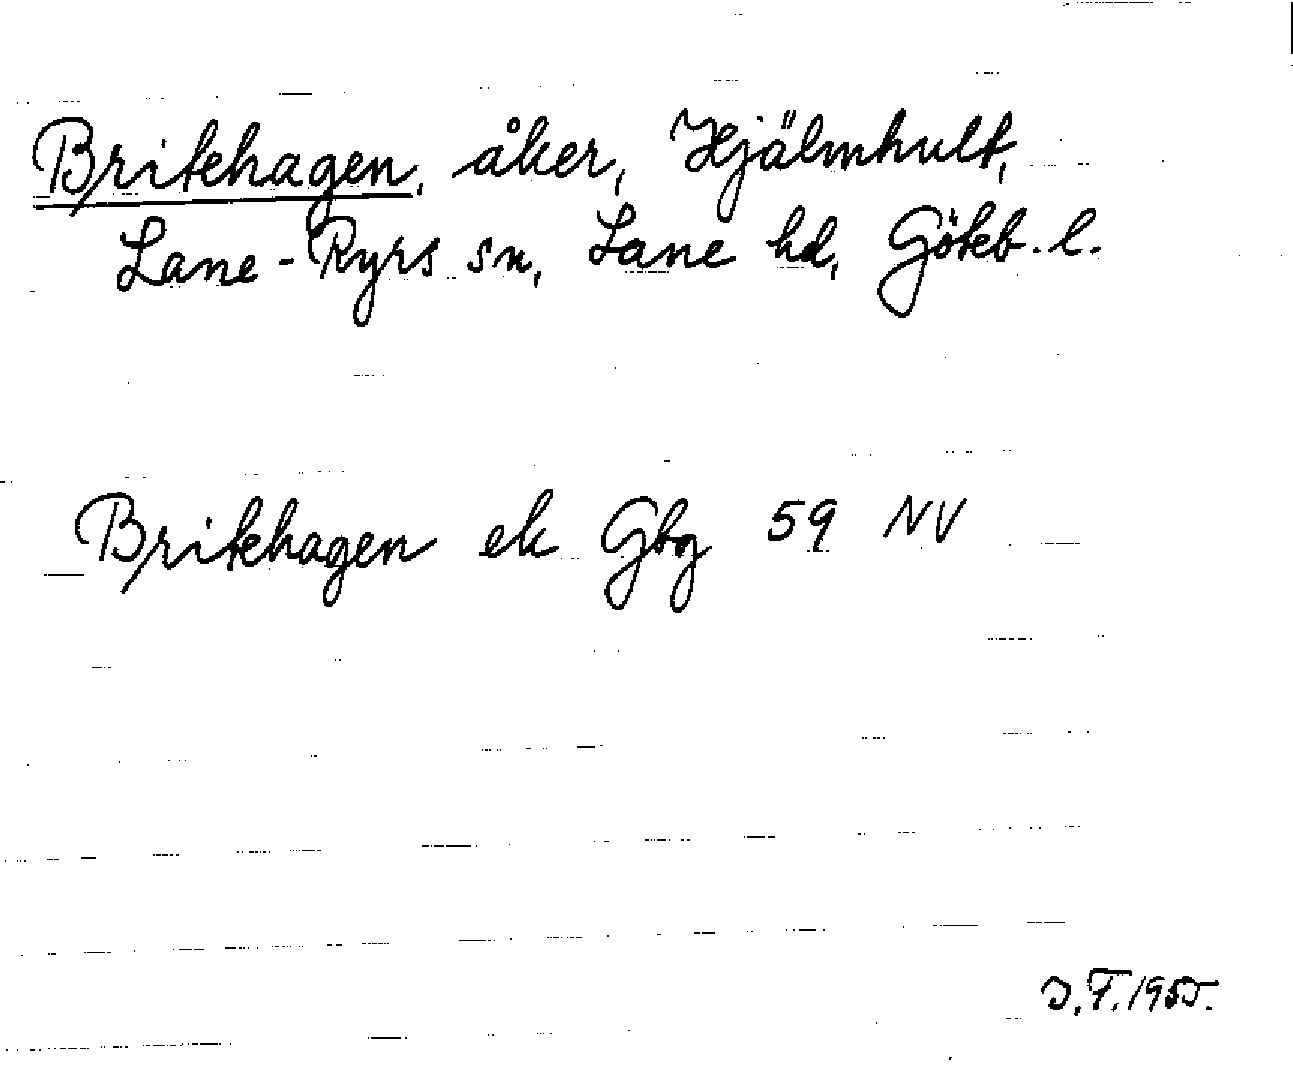 Britehagen, åker, Hjälmhult,
Lane-Ryrs sn, Lane hd, Göteb. l.
Britehagen ek Gbg 59 NV
D.F. 1955.